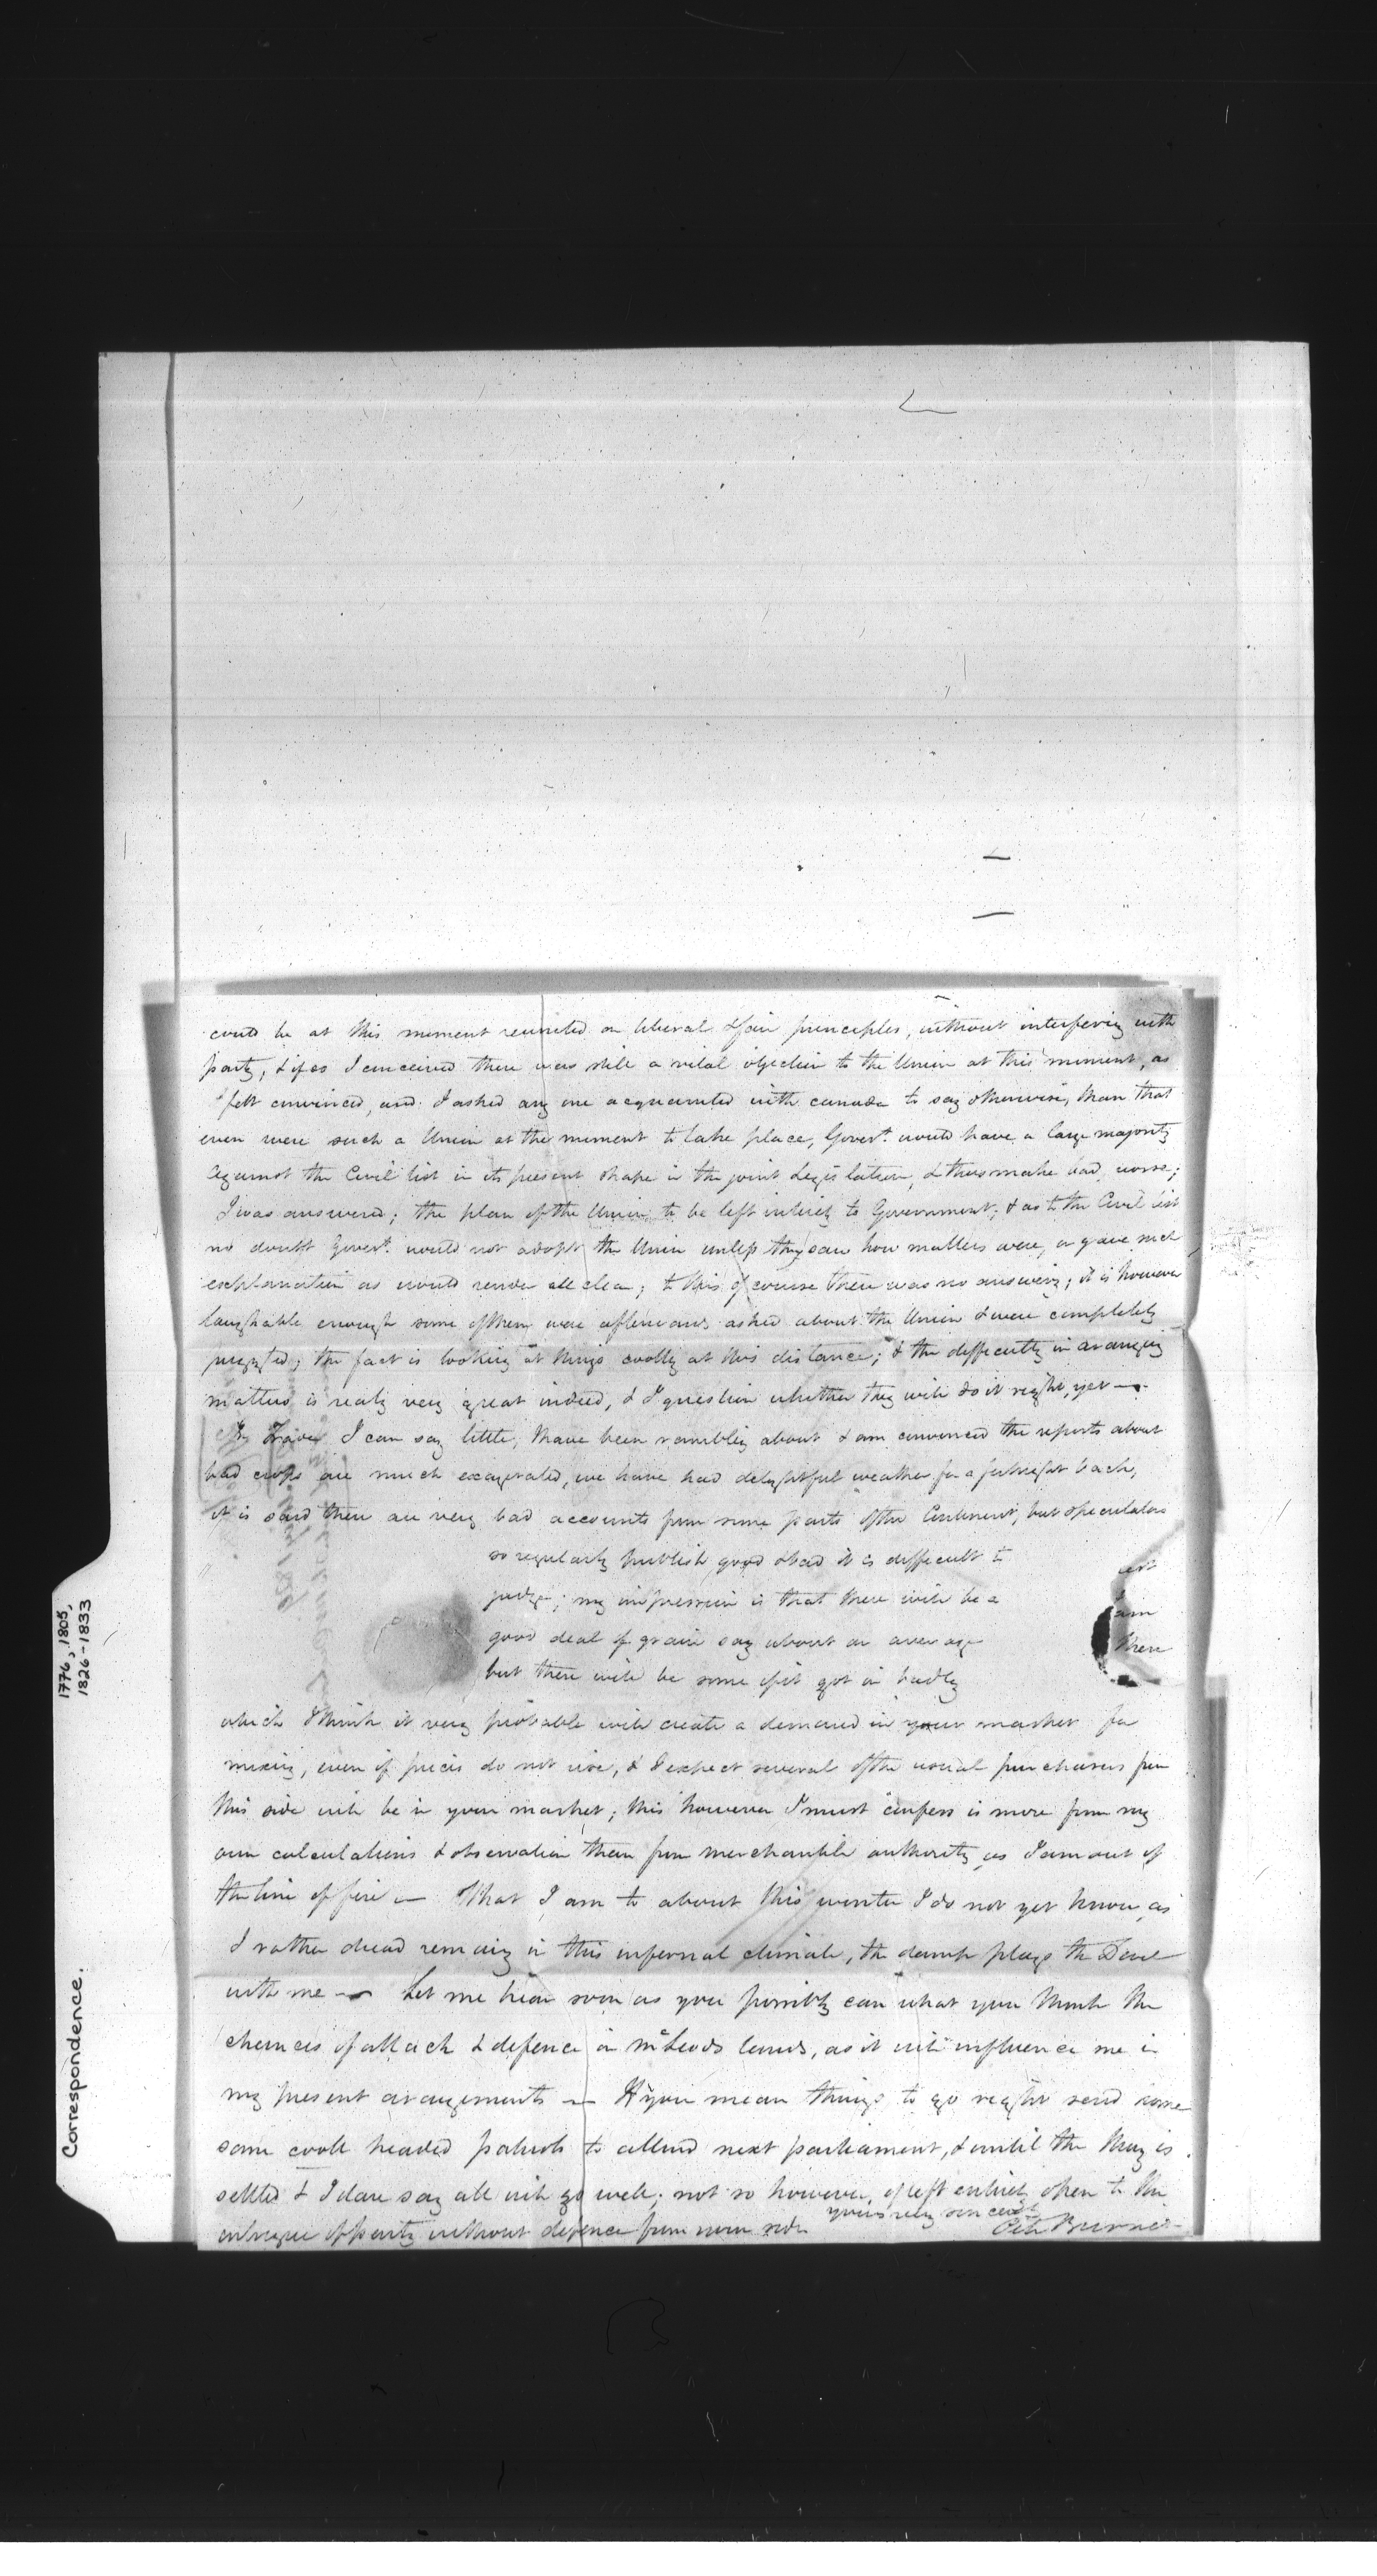 could be at this moment reunited on liberal & fair principles, without interfering with
party, & if so I conceived there was still a vital objection to the Union at this moment, as
I felt convinced, and I asked any one acquainted with canada to say otherwise, than that
even were such a Union at the moment to take place, Govert. would have a large majority
against the Civil list in its present shape in the joint Legislature, & thus make bad worse;
I was answered; the plan of the Union to be left entirely to Government; & as to the Civil list
no doubt Govert. would not adopt the Union unless they saw how matters were, or gave such
explanation as would render all clear; to this of course there was no answering; it is however
laughable enough some of them were afterwards asked about the Union & were completely
puzzled; the fact is looking at things coolly at this distance; & the difficulty in aranging
matters is realy very great indeed, & I question whether they will do it right, yet —
I can say little, I have been rambling about & am convinced the reports about
bad crops are much exagerated, we have had delightful weather for a fortnight back,
it is said there are very bad accounts from some parts of the Continent, but speculators
so regularly publish good & bad it is difficult to
judge; my impression is that there will be a
good deal of grain say about an average
but there will be some of it got in badly
am
there
which I think it very probable will create a demand in your market for
mixing, even if prices do not rise, & I expect several of the usual purchasers from
this side will be in your market; this however I must confess is more from my
own calculations & observation than from merchantile authority, as I am out of
the line of fire — What I am to about this winter I do not yet know, as
I rather dread remaing in this infernal climate, the damp plays the Devil
with me — Let me hear soon as you possibly can what you think the
chances of attack & defence on McLeods lands, as it will influence me in
my present arangements — If you mean things to go right send some
some cooll headed patriots to attend next parliament, & until the thing is
settled & I dare say all will go well; not so however, if left entirely open to the
intrigue of party without defence from your side yours very sincerely
Correspondence.
1776, 1805,
1826-1833